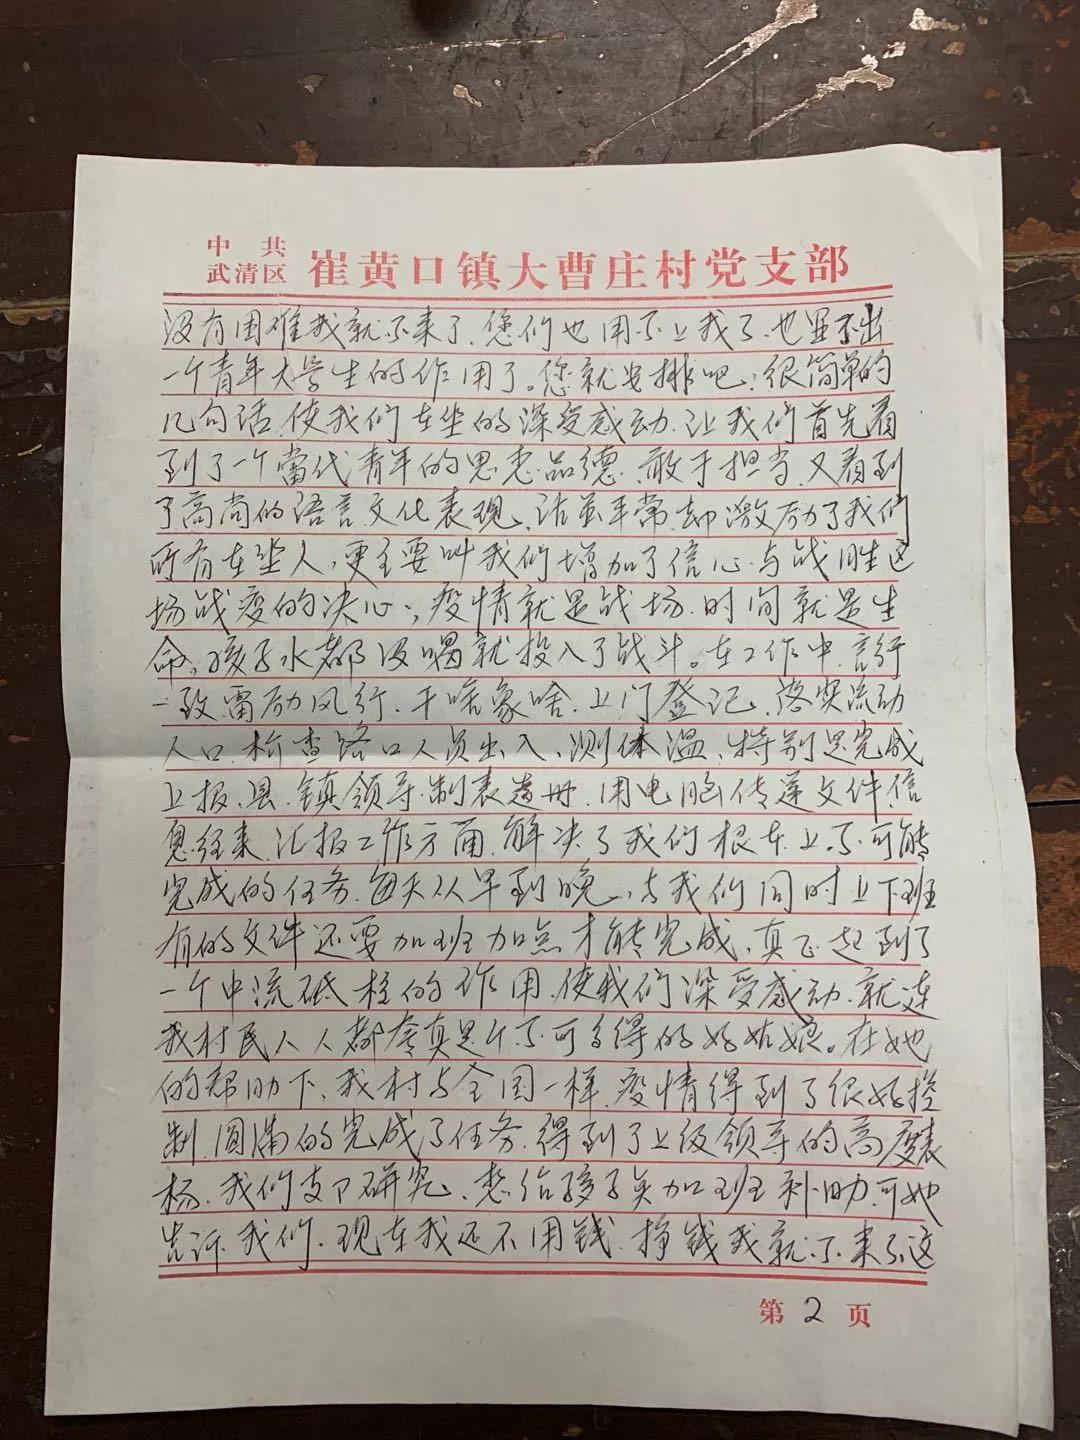 中共
武清区 崔黄口镇大曹庄村党支部
没有困难我就不来了、您们也用不上我了、也显不出
一个青年大学生的作用了。您就安排吧；很简单的
几句话、使我们在坐的深受感动、让我们首先看
到了一个当代青年的思想品德、敢于担当、又看到
了高尚的语言文化表现、话虽平常却激励了我们
所有在坐人、更主要叫我们增加了信心与战胜这
场战疫的决心；疫情就是战场、时间就是生
命、孩子水都没喝就投入了战斗。在工作中、言行
一致、雷励风行、干啥象啥、上门登记、落实流动
人口、检查路口人员出入、测体温、特别是完成
上报、县、镇领导、制表造册、用电脑传递文件、信
息往来、汇报工作方面、解决了我们根本上不可能
完成的任务、每天从早到晚、与我们同时上下班
有的文件还要加班加点才能完成、真正起到了
一个中流砥柱的作用、使我们深受感动、就连
我村民人人都夸真是个不可多得的好姑娘。在她
的帮助下、我村与全国一样、疫情得到了很好控
制、圆满的完成了任务、得到了上级领导的高度表
杨、我们支部研究、想给孩子点加班补助、可她
告诉我们、现在我还不用钱、挣钱我就不来了、这
第 2 页